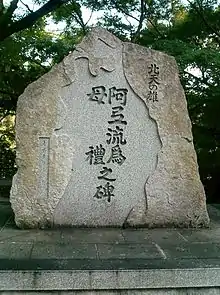 北天の雄
阿弖流為
母禮之碑